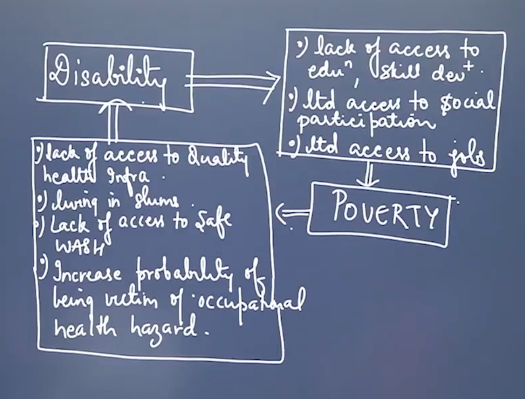 Disability
•) lack of access to
eduⁿ, skill dev⁺.
•) ltd access to social
participation
•) ltd access to jobs
POVERTY
•) lack of access to Quality
health Infra.
•) living in slums.
•) Lack of access to Safe
WASH
•) Increase probability of
being victim of occupational
health hazard.